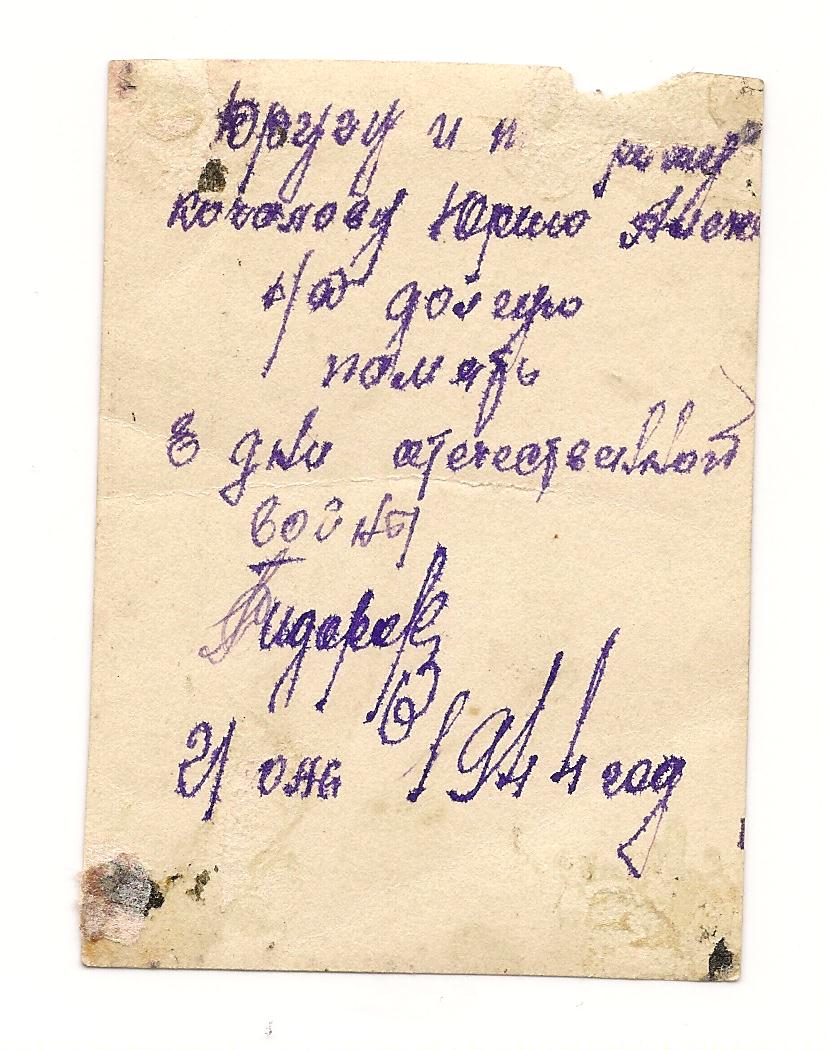 другу и п
Кочалову Юрию Алек
на долгую
память
В дни отечественной
войны
21 янв 1944 год